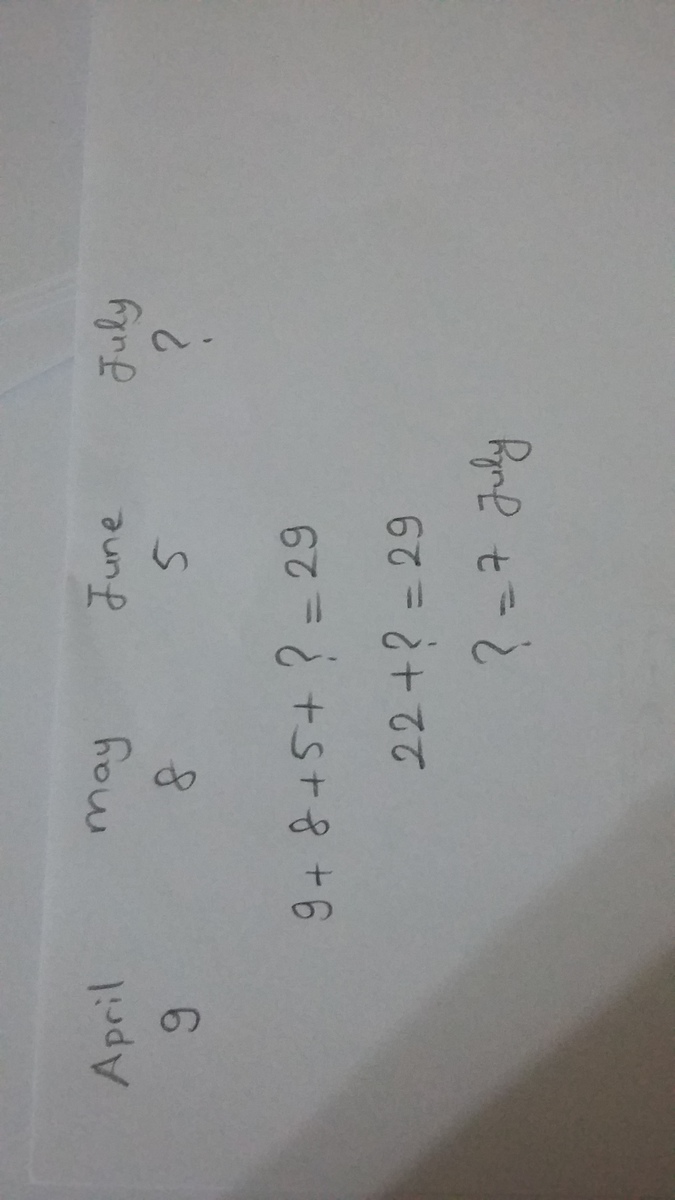 April may June July
9 8 5 ?
9 + 8 + 5 + ? = 29
22 + ? = 29
? = 7 July